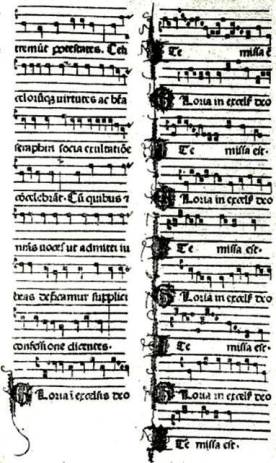 tremūt potestates. Celi
celorūq; virtutes ac bta
seraphin socia exultatiōe
cōcelebrāt. Cū quibus ⁊
nr̄as voces ut admitti iu
beas deṗcamur supplici
confessione dicentes.
Gloria ī excelsis deo
Ite missa ē
Gloria in excels̄ deo
Ite missa est.
Gloria in excels̄ deo
Ite missa est.
Gloria in excels̄ deo
Ite missa est.
Gloria in excels̄ deo
Ite missa est.